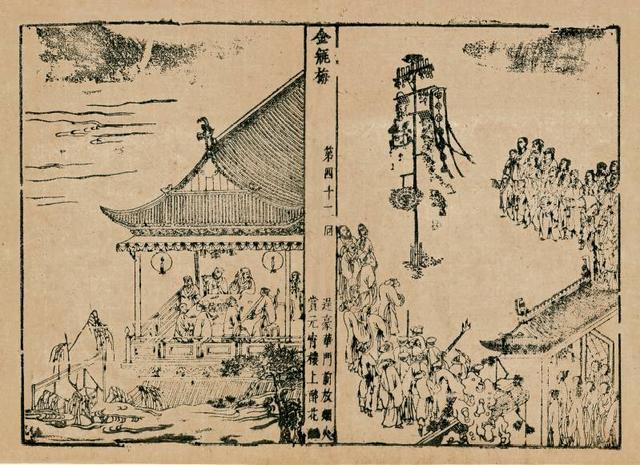 金瓶梅
第四十二回
逞豪華門前放烟火
賞元宵樓上醉花燈